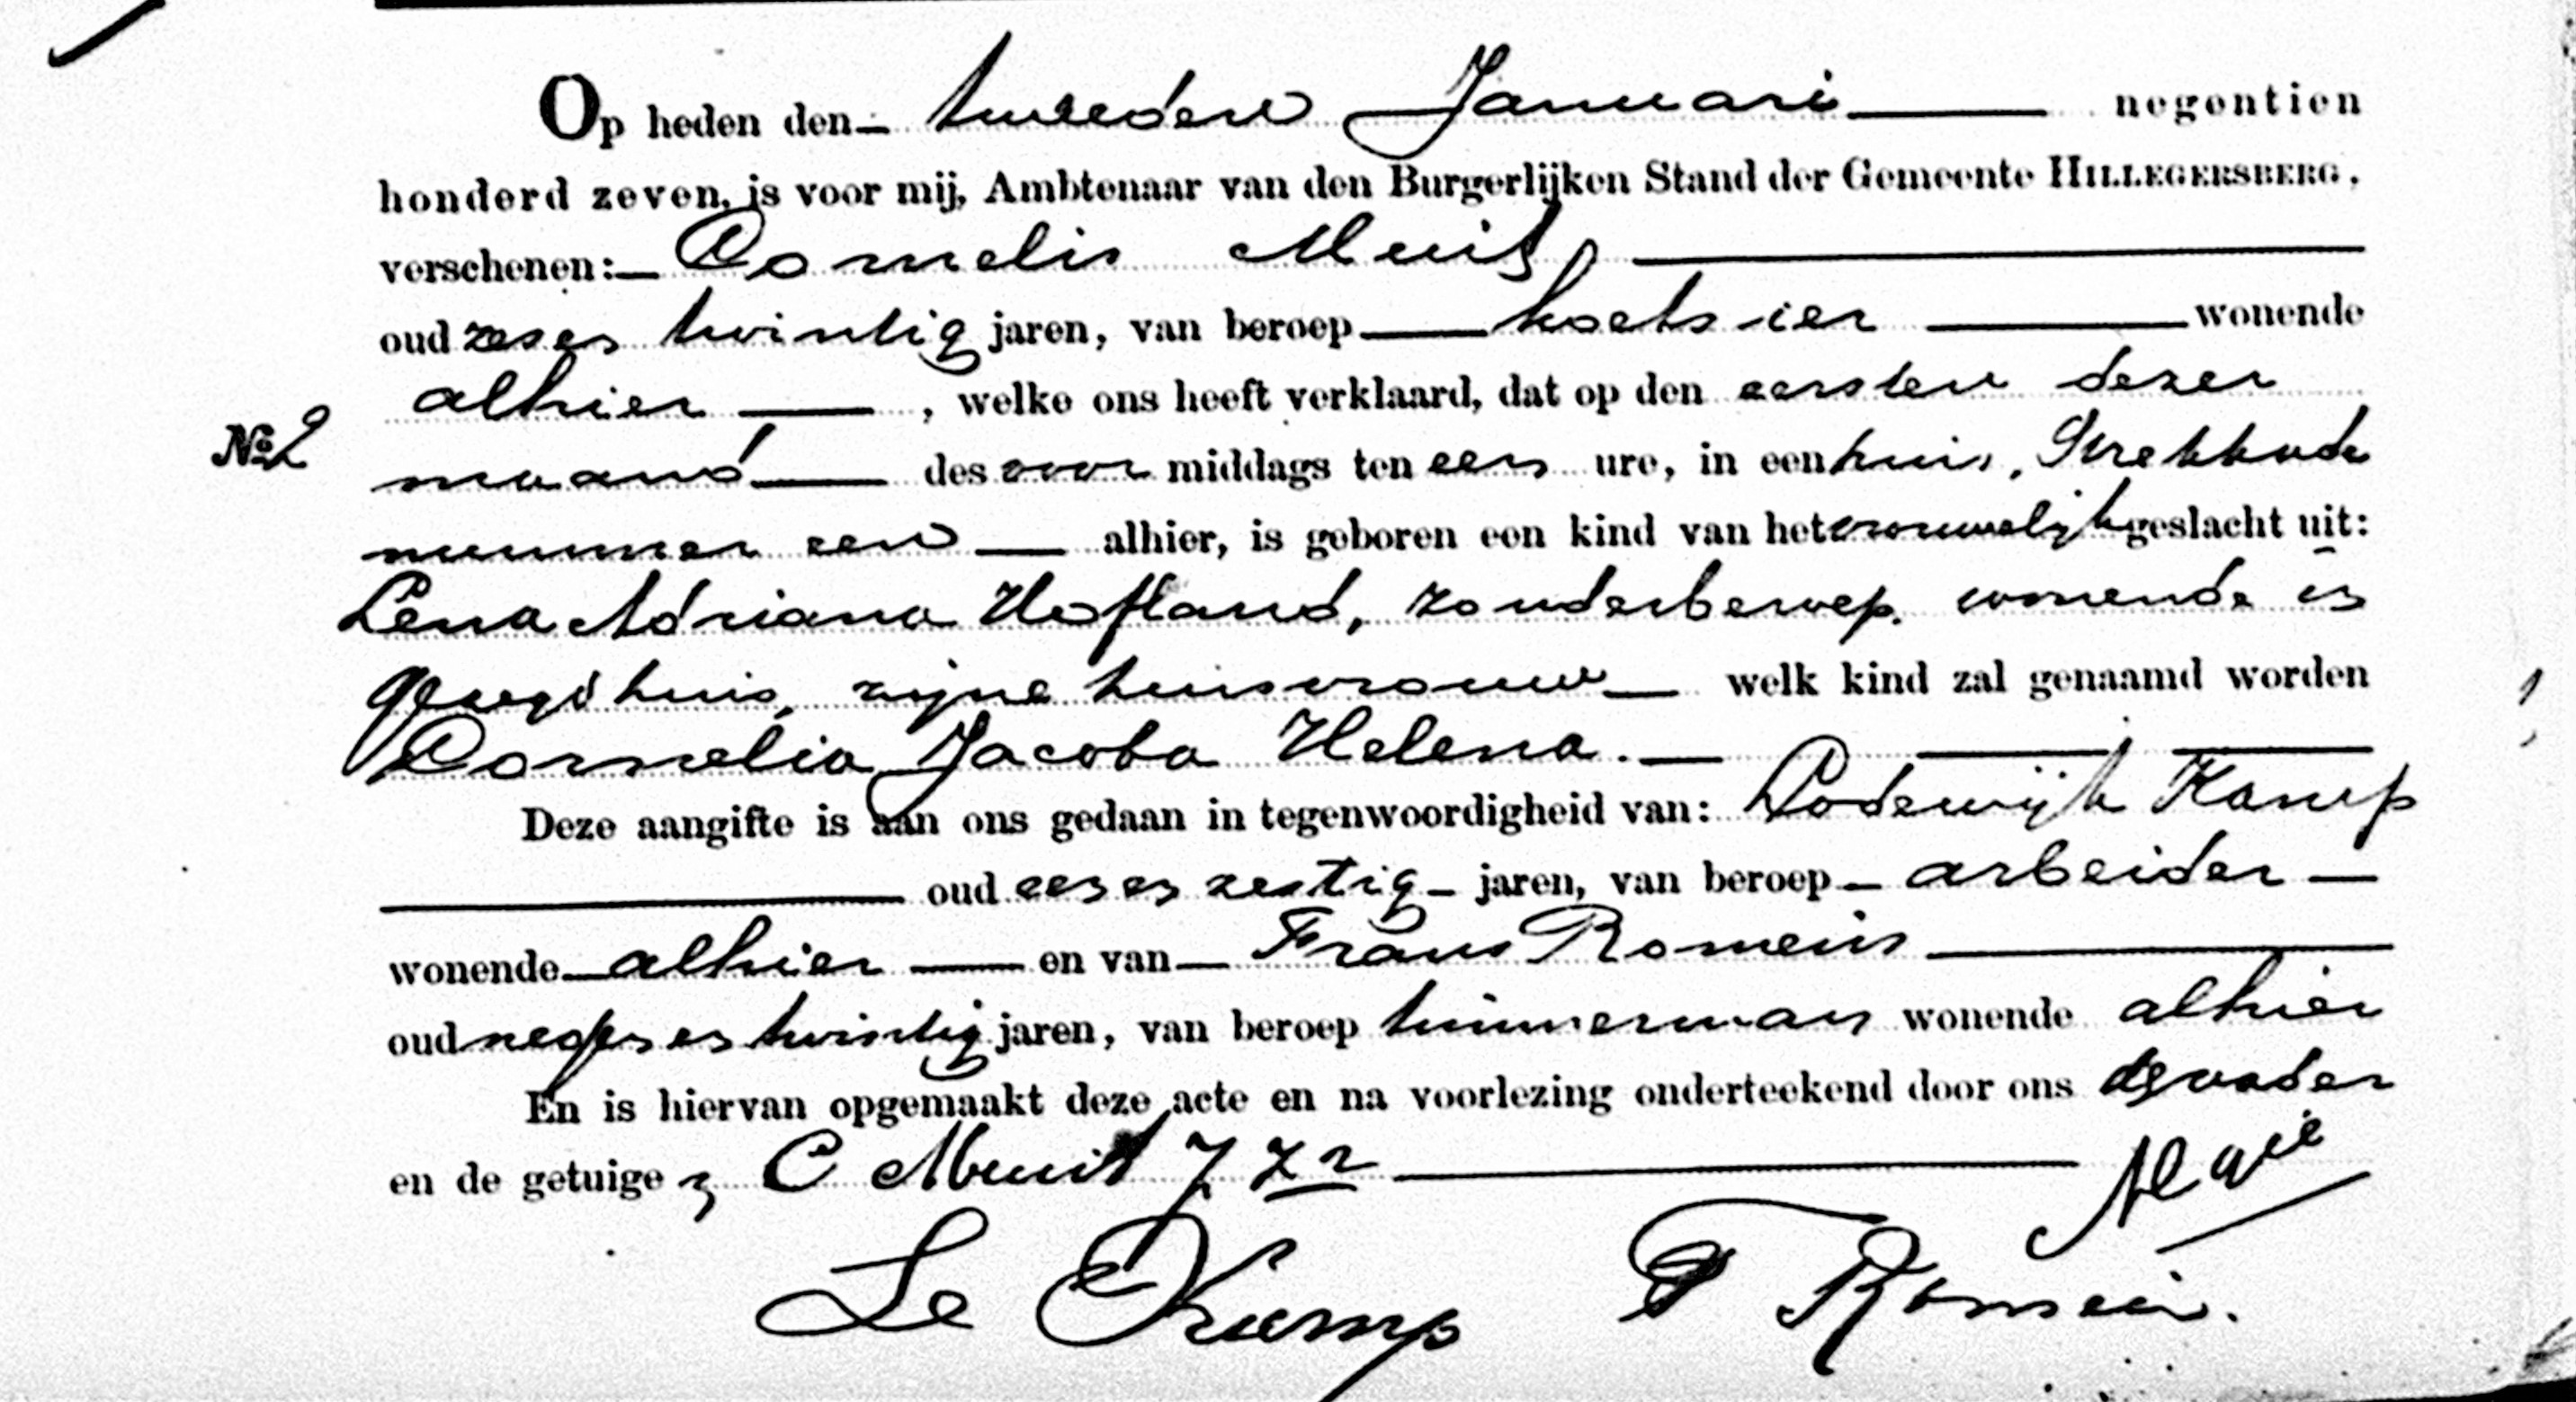 Op heden den tweeden Januari negentien
honderd zeven, is voor mij, Ambtenaar van den Burgerlijken Stand der Gemeente HILLEGERSBERG,
verschenen: Cornelis Muit,
oud zes en twintig jaren, van beroep koetsier wonende
alhier, welke ons heeft verklaard, dat op den eersten dezer
No 2 maand des voor middags ten een ure, in een huis, Strekkade
nummer een alhier, is geboren een kind van het vrouwelijk geslacht uit:
Lena Adriana Hofland, zonder beroep, wonende in
gezegd huis, zijne huisvrouw welk kind zal genaamd worden
Cornelia Jacoba Helena.
Deze aangifte is aan ons gedaan in tegenwoordigheid van: Lodewijk Kamp
oud een en zestig jaren, van beroep arbeider
wonende alhier en van Frans Romein
oud negen en twintig jaren, van beroep timmerman wonende alhier
En is hiervan opgemaakt deze acte en na voorlezing onderteekend door ons de vader
en de getuigen C Muit
Le Kamp F Romein.